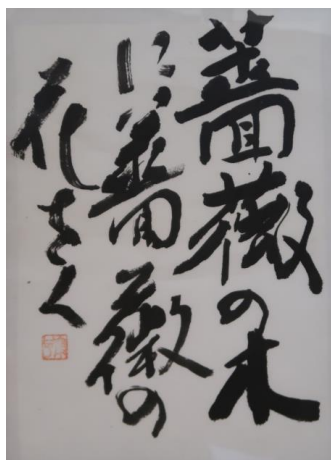 薔薇の木
に薔薇の
花さく